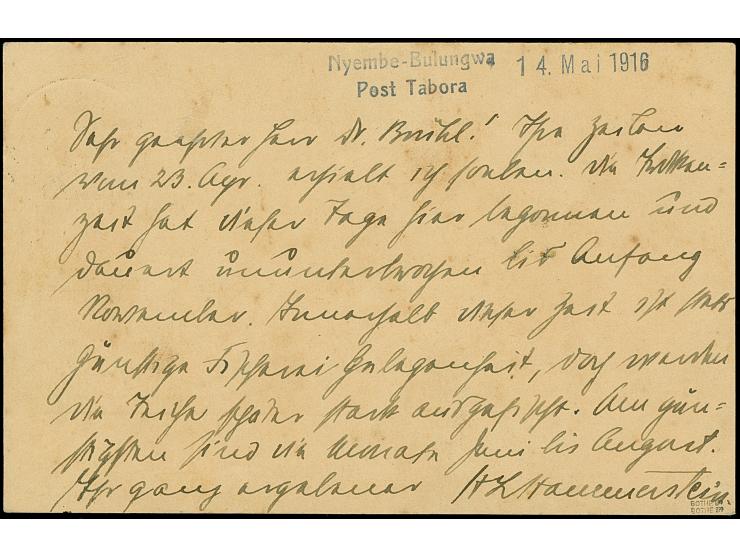 Nyembe-Bulungwa 14. Mai 1916
Post Tabora
Sehr geehrter Herr Dr. Brühl! Ihre Zeilen
vom 23. Apr. erhielt ich soeben. Die Trocken=
zeit hat dieser Tage hier begonnen und
dauert ununterbrochen bis Anfang
November. Innerhalb dieser Zeit ist stets
günstige Fischerei Gelegenheit, doch werden
die Teiche später stark ausgefischt. Am gün=
stigsten sind die Monate Juni bis August.
Ihr ganz ergebener H L Hammerstein.
BOTHE
BOTHE